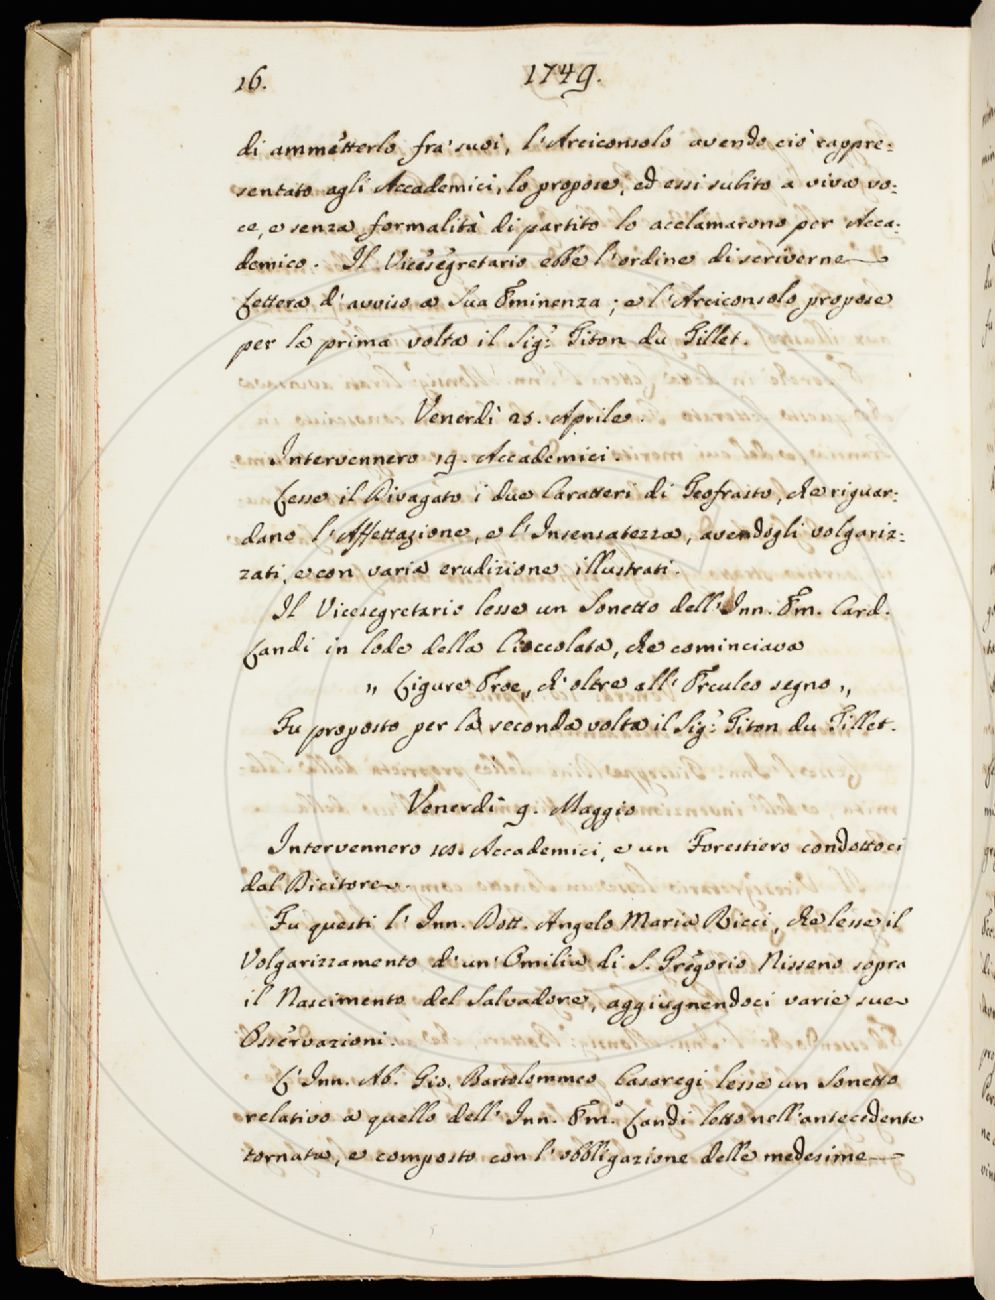 16.
1749.
di ammetterlo fra' suoi, l'Arciconsolo avendo ciò rappre=
sentato agli Accademici, lo propose, ed essi subito a viva vo=
ce, e senza formalità di partito lo acclamarono per Acca=
demico. Il Vicesegretario ebbe l'ordine di scriverne
Lettera d'avviso a Sua Eminenza; e l'Arciconsolo propose
per la prima volta il Sig.r Titon du Tillet.
Venerdì 25. Aprile.
Intervennero 19. Accademici.
Lesse il Divagato i due Caratteri di Teofrasto, che riguar=
dano l'Affettazione, e l'Insensatezza, avendogli volgariz=
zati, e con varia erudizione illustrati.
Il Vicesegretario lesse un Sonetto dell'Inn. Em. Card.
Landi in lode della Cioccolata, che cominciava
„ Ligure Eroe, ch'oltre all'Erculeo segno „
Fu proposto per la seconda volta il Sig.r Titon du Tillet.
Venerdì 9. Maggio
Intervennero Accademici, e un Forestiero condottoci
dal Dicitore.
Fu questi l'Inn. Dott. Angelo Maria Ricci, che lesse il
Volgarizzamento d'un'Omilia di S. Gregorio Nisseno sopra
il Nascimento del Salvadore, aggiugnendoci varie sue
Osservazioni.
L'Inn. Ab. Gio. Bartolommeo Casaregi lesse un Sonetto
relativo a quello dell'Inn. Em.o Landi letto nell'antecedente
tornata, e composto con l'obbligazione delle medesime